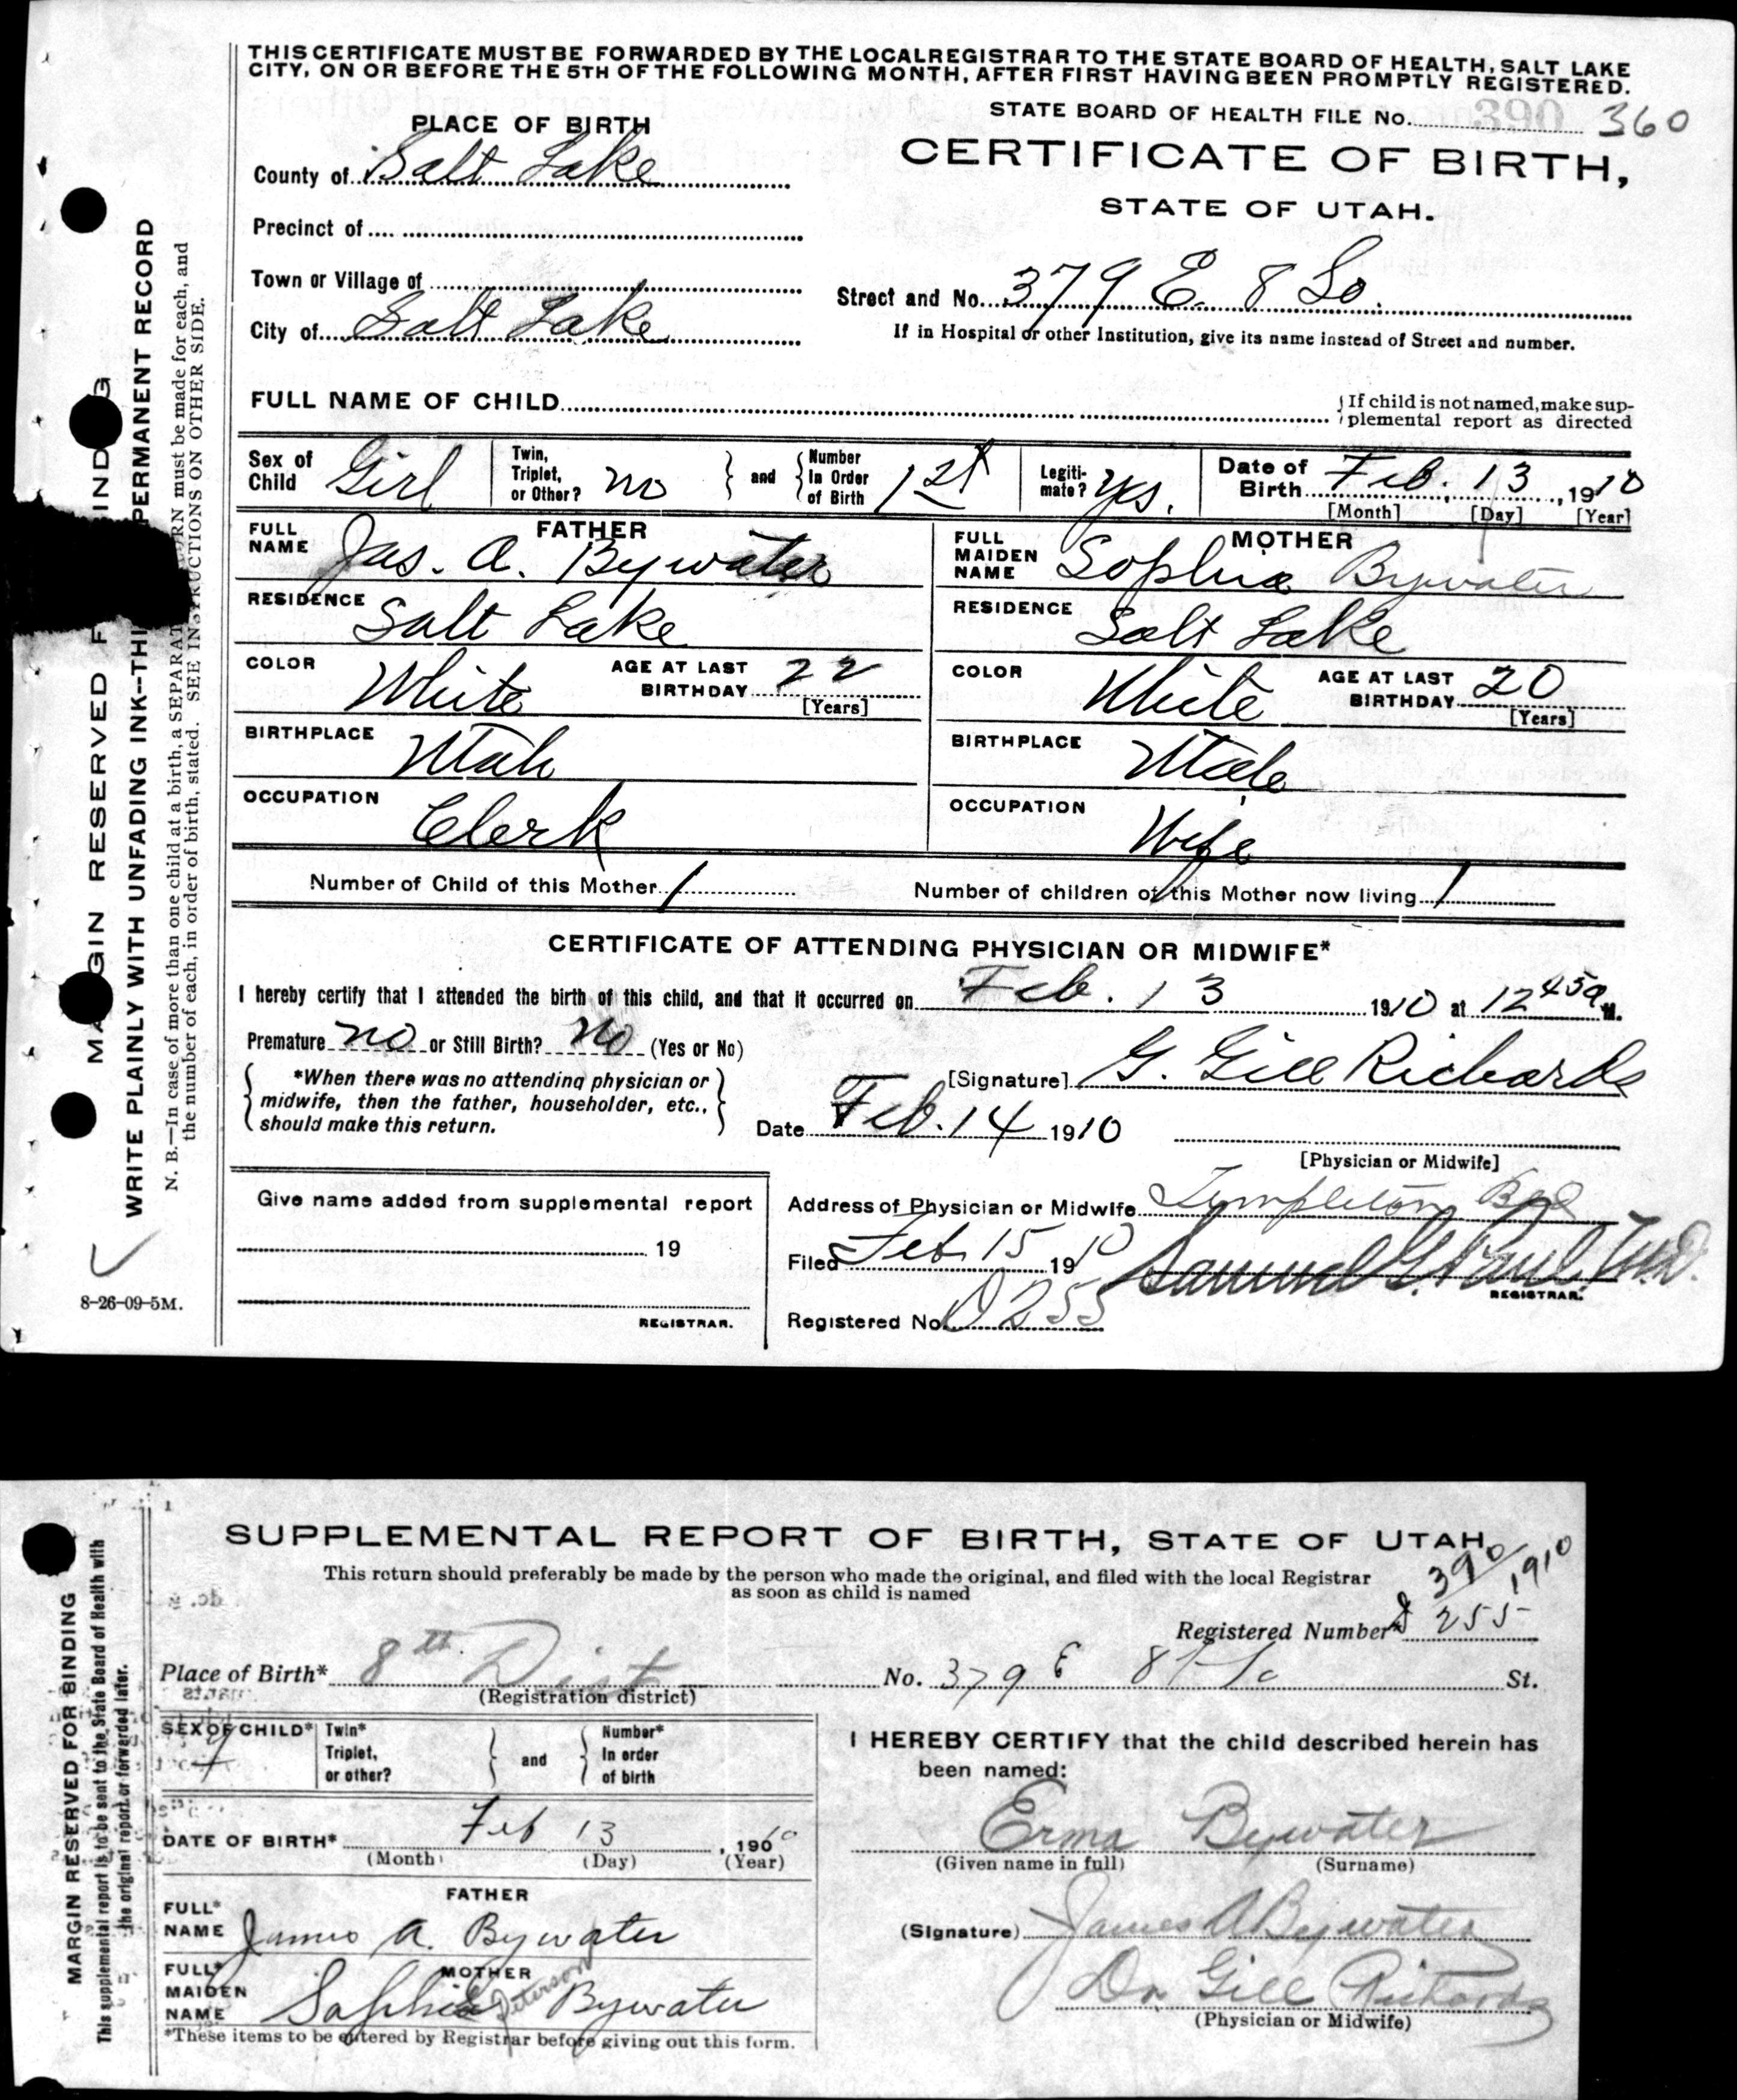 THIS CERTIFICATE MUST BE FORWARDED BY THE LOCAL REGISTRAR TO THE STATE BOARD OF HEALTH, SALT LAKE
CITY, ON OR BEFORE THE 5TH OF THE FOLLOWING MONTH, AFTER FIRST HAVING BEEN PROMPTLY REGISTERED.
STATE BOARD OF HEALTH FILE No. 390 360
PLACE OF BIRTH
CERTIFICATE OF BIRTH,
STATE OF UTAH.
County of Salt Lake
Precinct of
Town or Village of
Street and No. 379 E. 8 So.
City of Salt Lake
If in Hospital or other Institution, give its name instead of Street and number.
FULL NAME OF CHILD
If child is not named, make sup-
plemental report as directed
Sex of Child Girl
Twin, Triplet, or Other? no and Number In Order of Birth 1st
Legiti-mate? Yes.
Date of Birth Feb. 13, 1910
[Month] [Day] [Year]
FATHER
FULL NAME Jas. A. Bywater
MOTHER
FULL MAIDEN NAME Sophia Bywater
RESIDENCE Salt Lake
RESIDENCE Salt Lake
COLOR White AGE AT LAST BIRTHDAY 22 [Years]
COLOR White AGE AT LAST BIRTHDAY 20 [Years]
BIRTHPLACE Utah
BIRTHPLACE Utah
OCCUPATION Clerk
OCCUPATION Wife
Number of Child of this Mother 1 Number of children of this Mother now living 1
CERTIFICATE OF ATTENDING PHYSICIAN OR MIDWIFE*
I hereby certify that I attended the birth of this child, and that it occurred on Feb. 13 1910 at 12 45 a M.
Premature no or Still Birth? no (Yes or No)
*When there was no attending physician or
midwife, then the father, householder, etc.,
should make this return.
[Signature] G. Gill Richards
Date Feb. 14 1910
[Physician or Midwife]
Give name added from supplemental report
19
REGISTRAR.
Address of Physician or Midwife Templeton Bld
Filed Feb 15 1910 Samuel G. Paul, M.D.
REGISTRAR.
Registered No. 255
8-26-09-5M.
MARGIN RESERVED F BINDING
WRITE PLAINLY WITH UNFADING INK--THI PERMANENT RECORD
N. B.—In case of more than one child at a birth, a SEPARAT RN must be made for each, and
the number of each, in order of birth, stated. SEE INSTRUCTIONS ON OTHER SIDE.
SUPPLEMENTAL REPORT OF BIRTH, STATE OF UTAH.
This return should preferably be made by the person who made the original, and filed with the local Registrar
as soon as child is named
390/1910
Registered Number* 255
Place of Birth* 8th Dist No. 379 E 8th So St.
(Registration district)
SEX OF CHILD*
Twin* Triplet, or other? and Number* In order of birth
I HEREBY CERTIFY that the child described herein has
been named:
Erma Bywater
(Given name in full) (Surname)
DATE OF BIRTH* Feb 13, 1910
(Month) (Day) (Year)
FATHER
FULL* NAME James A. Bywater
(Signature) James A Bywater
MOTHER
FULL* MAIDEN NAME Sophia Peterson Bywater
Dr. Gill Richards
(Physician or Midwife)
*These items to be entered by Registrar before giving out this form.
MARGIN RESERVED FOR BINDING
This supplemental report is to be sent to the State Board of Health with
the original report or forwarded later.